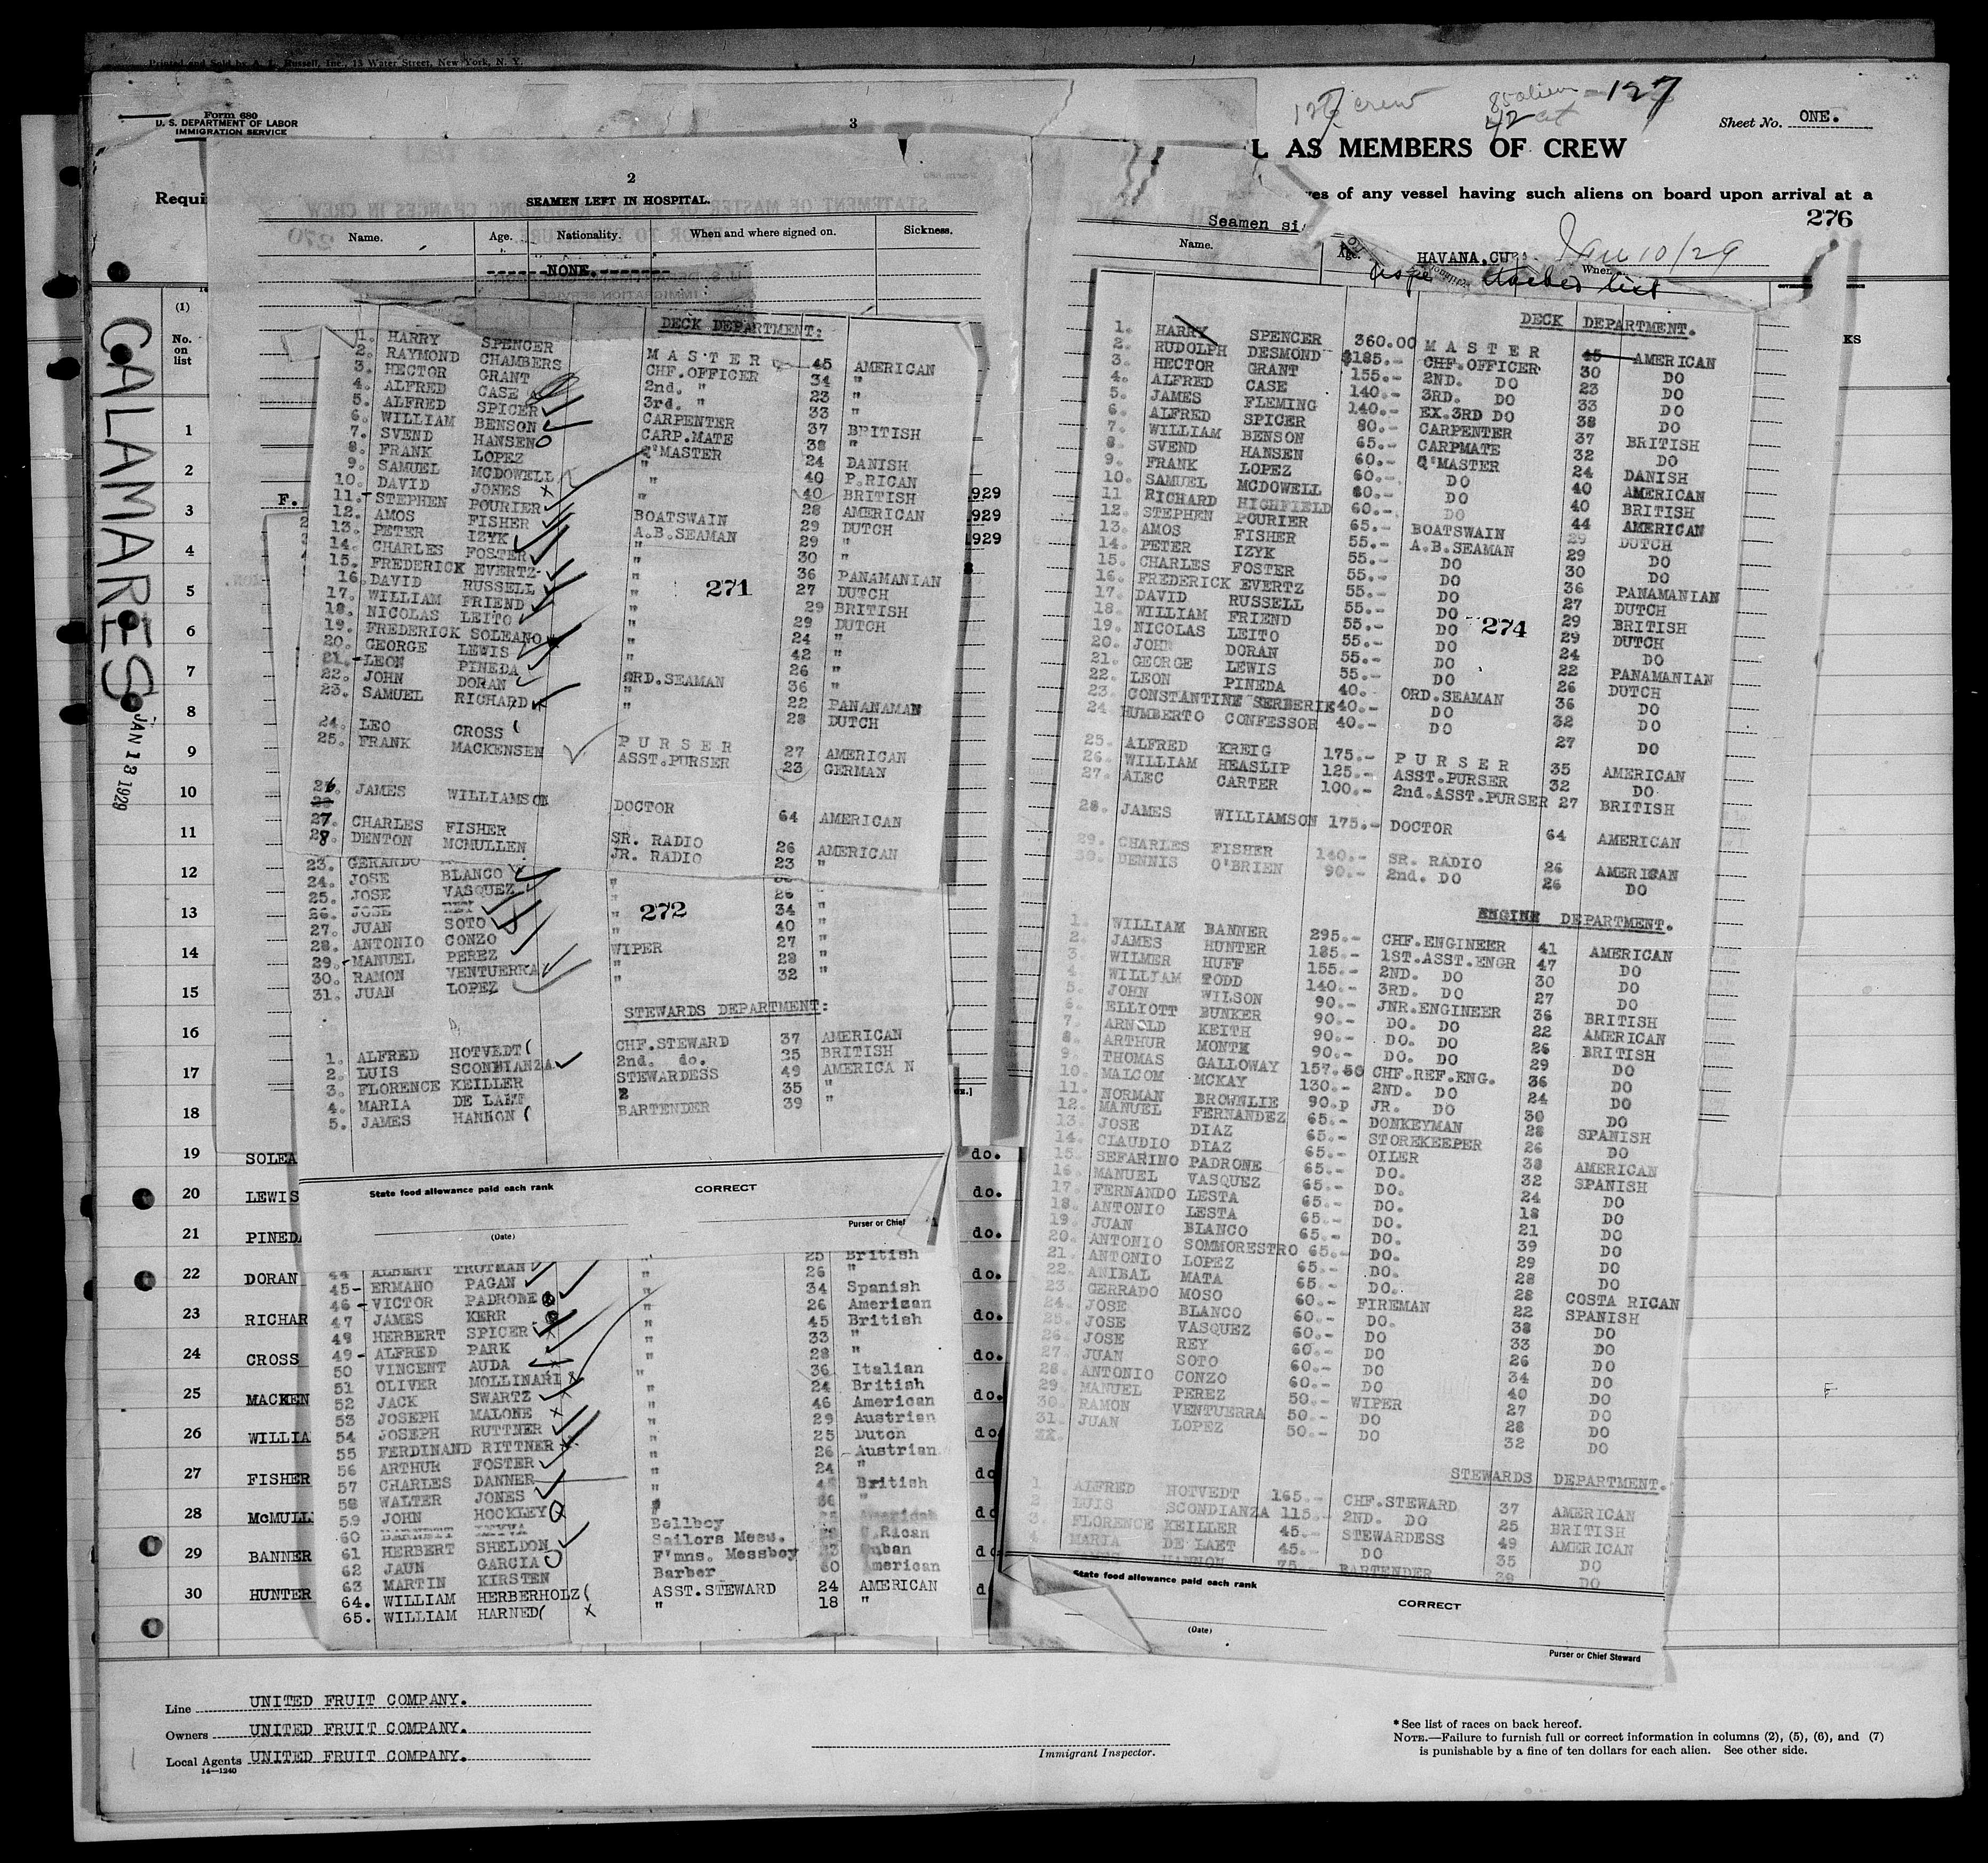 Printed and Sold by A. L. Russell, Inc., 13 Water Street, New York, N. Y.
Form 680
U. S. DEPARTMENT OF LABOR
IMMIGRATION SERVICE
3
crew
127
Sheet No. ONE.
AS MEMBERS OF CREW
of any vessel having such aliens on board upon arrival at a
276
HAVANA, CU
Jan 10/29
CALAMARES
JAN 13 1929
(1)
No. on list
1
2
3
4
5
6
7
8
9
10
11
12
13
14
15
16
17
18
19
20 LEWIS
21
22 DORAN
23 RICHAR
24 CROSS
25 MACKEN
26 WILLIA
27 FISHER
28 McMULL
29 BANNER
30 HUNTER
2
SEAMEN LEFT IN HOSPITAL.
Name. Age. Nationality. When and where signed on. Sickness.
NONE.
DECK DEPARTMENT:
1. HARRY SPENCER MASTER 45 AMERICAN
2. RAYMOND CHAMBERS CHF.OFFICER 34 "
3. HECTOR GRANT 2nd. " 23 "
4. ALFRED CASE 3rd. " 33 "
5. ALFRED SPICER CARPENTER 37 BRITISH
6. WILLIAM BENSON CARP.MATE 38 "
7. SVEND HANSEN Q'MASTER 24 DANISH
8. FRANK LOPEZ " 40 P.RICAN
9. SAMUEL MCDOWELL " 40 BRITISH
10. DAVID JONES " 28 AMERICAN
11. STEPHEN POURIER BOATSWAIN 29 DUTCH
12. AMOS FISHER A.B.SEAMAN 29 "
13. PETER IZYK " 30 "
14. CHARLES FOSTER " 36 PANAMANIAN
15. FREDERICK EVERTZ " 27 DUTCH
16. DAVID RUSSELL " 29 BRITISH
17. WILLIAM FRIEND " 29 DUTCH
18. NICOLAS LEITO " 24 "
19. FREDERICK SOLEANO " 42 "
20. GEORGE LEWIS " 26 "
21. LEON PINEDA ORD.SEAMAN 36 "
22. JOHN DORAN " 22 PANANAMAN
23. SAMUEL RICHARD " 28 DUTCH
271
24. LEO CROSS PURSER 27 AMERICAN
25. FRANK MACKENSEN ASST.PURSER 23 GERMAN
26. JAMES WILLIAMSON DOCTOR 64 AMERICAN
27. CHARLES FISHER SR. RADIO 26 AMERICAN
28. DENTON MCMULLEN JR. RADIO 23 "
23. GERARDO
24. JOSE BLANCO " "
25. JOSE VASQUEZ " 26 "
26. JOSE REY " 34 "
27. JUAN SOTO " 40 "
28. ANTONIO CONZO
29. MANUEL PEREZ WIPER 27 "
30. RAMON VENTUERRA " 28 "
31. JUAN LOPEZ " 32 "
272
STEWARDS DEPARTMENT:
1. ALFRED HOTVEDT CHF.STEWARD 37 AMERICAN
2. LUIS SCONDIANZA 2nd. do. 25 BRITISH
3. FLORENCE KEILLER STEWARDESS 49 AMERICA N
4. MARIA DE LAET 35 "
5. JAMES HANNON BARTENDER 39 "
State food allowance paid each rank
CORRECT
(Date)
Purser or Chief
44 ALBERT TROTMAN " 25 British
45- ERMANO PAGAN " 26 "
46- VICTOR PADRONE " 34 Spanish
47 JAMES KERR " 26 American
48 HERBERT SPICER " 45 British
49- ALFRED PARK " 33 "
50 VINCENT AUDA " 28 "
51 OLIVER MOLLINARI " 36 Italian
52 JACK SWARTZ " 24 British
53 JOSEPH MALONE " 46 American
54 JOSEPH RUTTNER " 29 Austrian
55 FERDINAND RITTNER " 25 Dutch
56 ARTHUR FOSTER " 26 Austrian
57 CHARLES DANNER " 24 "
58 WALTER JONES " British
59 JOHN HOCKLEY "
60 Bellboy
61 HERBERT SHELDON Sailors Mess. Rican
62 JAUN GARCIA F'mns. Messboy
63 MARTIN KIRSTEN Barber 60 American
64. WILLIAM HERBERHOLZ ASST.STEWARD 24 AMERICAN
65. WILLIAM HARNED " 18 "
Seamen si
Name. Age. When
list
DECK DEPARTMENT.
1. HARRY SPENCER 360.00 MASTER 45 AMERICAN
2. RUDOLPH DESMOND $185.- CHF.OFFICER 30 DO
3. HECTOR GRANT 155.- 2ND. DO 23 DO
4. ALFRED CASE 140.- 3RD. DO 33 DO
5. JAMES FLEMING 140.- EX.3RD DO 38 DO
6. ALFRED SPICER 80.- CARPENTER 37 BRITISH
7. WILLIAM BENSON 65.- CARPMATE 32 DO
8. SVEND HANSEN 60.- Q'MASTER 24 DANISH
9. FRANK LOPEZ 60.- DO 40 AMERICAN
10. SAMUEL MCDOWELL 60.- DO 40 BRITISH
11 RICHARD HIGHFIELD 60.- DO 44 AMERICAN
12. STEPHEN POURIER 65.- BOATSWAIN 29 DUTCH
13. AMOS FISHER 55.- A.B.SEAMAN 29 DO
14. PETER IZYK 55.- DO 30 DO
15. CHARLES FOSTER 55.- DO 36 PANAMANIAN
16. FREDERICK EVERTZ 55.- DO 27 DUTCH
17. DAVID RUSSELL 55.- DO 29 BRITISH
18. WILLIAM FRIEND 55.- DO 29 DUTCH
19. NICOLAS LEITO 55.- DO 24 DO
20. JOHN DORAN 55.- DO 22 PANAMANIAN
21. GEORGE LEWIS 55.- DO 26 DUTCH
22. LEON PINEDA 40.- ORD.SEAMAN 36 DO
23. CONSTANTINE SERBERIE 40.- DO 32 DO
24 HUMBERTO CONFESSOR 40.- DO 27 DO
274
25. ALFRED KREIG 175.- PURSER 35 AMERICAN
26. WILLIAM HEASLIP 125.- ASST.PURSER 32 DO
27. ALEC CARTER 100.- 2nd.ASST.PURSER 27 BRITISH
28. JAMES WILLIAMSON 175.- DOCTOR 64 AMERICAN
29. CHARLES FISHER 140.- SR. RADIO 26 AMERICAN
30. DENNIS O'BRIEN 90.- 2nd. DO 26 DO
ENGINE DEPARTMENT.
1. WILLIAM BANNER 295.- CHF.ENGINEER 41 AMERICAN
2. JAMES HUNTER 185.- 1ST.ASST.ENGR 47 DO
3. WILMER HUFF 155.- 2ND. DO 30 DO
4. WILLIAM TODD 140.- 3RD. DO 27 DO
5. JOHN WILSON 90.- JNR.ENGINEER 36 BRITISH
6. ELLIOTT BUNKER 90.- DO. DO 22 AMERICAN
7. ARNOLD KEITH 90.- DO. DO 26 BRITISH
8. ARTHUR MONTK 90.- DO. DO 29 DO
9. THOMAS GALLOWAY 157.50 CHF.REF.ENG. 36 DO
10. MALCOM MCKAY 130.- 2ND. DO 24 DO
11. NORMAN BROWNLIE 90.p JR. DO 30 DO
12. MANUEL FERNANDEZ 65.- DONKEYMAN 28 SPANISH
13. JOSE DIAZ 65.- STOREKEEPER 26 DO
14. CLAUDIO DIAZ 65.- OILER 38 AMERICAN
15. SEFARINO PADRONE 65.- DO. 32 SPANISH
16. MANUEL VASQUEZ 65.- DO. 24 DO
17. FERNANDO LESTA 65.- DO. 18 DO
18. ANTONIO LESTA 65.- DO. 21 DO
19. JUAN BLANCO 65.- DO. 39 DO
20. ANTONIO SOMMORESTRO 65.- DO. 29 DO
21. ANTONIO LOPEZ 65.- DO. 28 DO
22. ANIBAL MATA 65.- DO. 28 COSTA RICAN
23. GERRADO MOSO 60.- FIREMAN 22 SPANISH
24. JOSE BLANCO 60.- DO. 38 DO
25. JOSE VASQUEZ 60.- DO 33 DO
26. JOSE REY 60.- DO 26 DO
27. JUAN SOTO 60.- DO 34 DO
28. ANTONIO CONZO 60.- DO 40 DO
29. MANUEL PEREZ 50.- WIPER 27 DO
30. RAMON VENTUERRA 50.- DO 28 DO
31. JUAN LOPEZ 50.- DO 32 DO
STEWARDS DEPARTMENT.
1 ALFRED HOTVEDT 165.- CHF.STEWARD 37 AMERICAN
2 LUIS SCONDIANZA 115.- 2ND. DO 25 BRITISH
3. FLORENCE KEILLER 45.- STEWARDESS 49 AMERICAN
4 MARIA DE LAET 45.- DO 35 DO
HANNON 75.- BARTENDER 39 DO
State food allowance paid each rank
CORRECT
(Date)
Purser or Chief Steward
Line UNITED FRUIT COMPANY.
Owners UNITED FRUIT COMPANY.
Local Agents UNITED FRUIT COMPANY.
14—1240
Immigrant Inspector.
* See list of races on back hereof.
NOTE.—Failure to furnish full or correct information in columns (2), (5), (6), and (7)
is punishable by a fine of ten dollars for each alien. See other side.